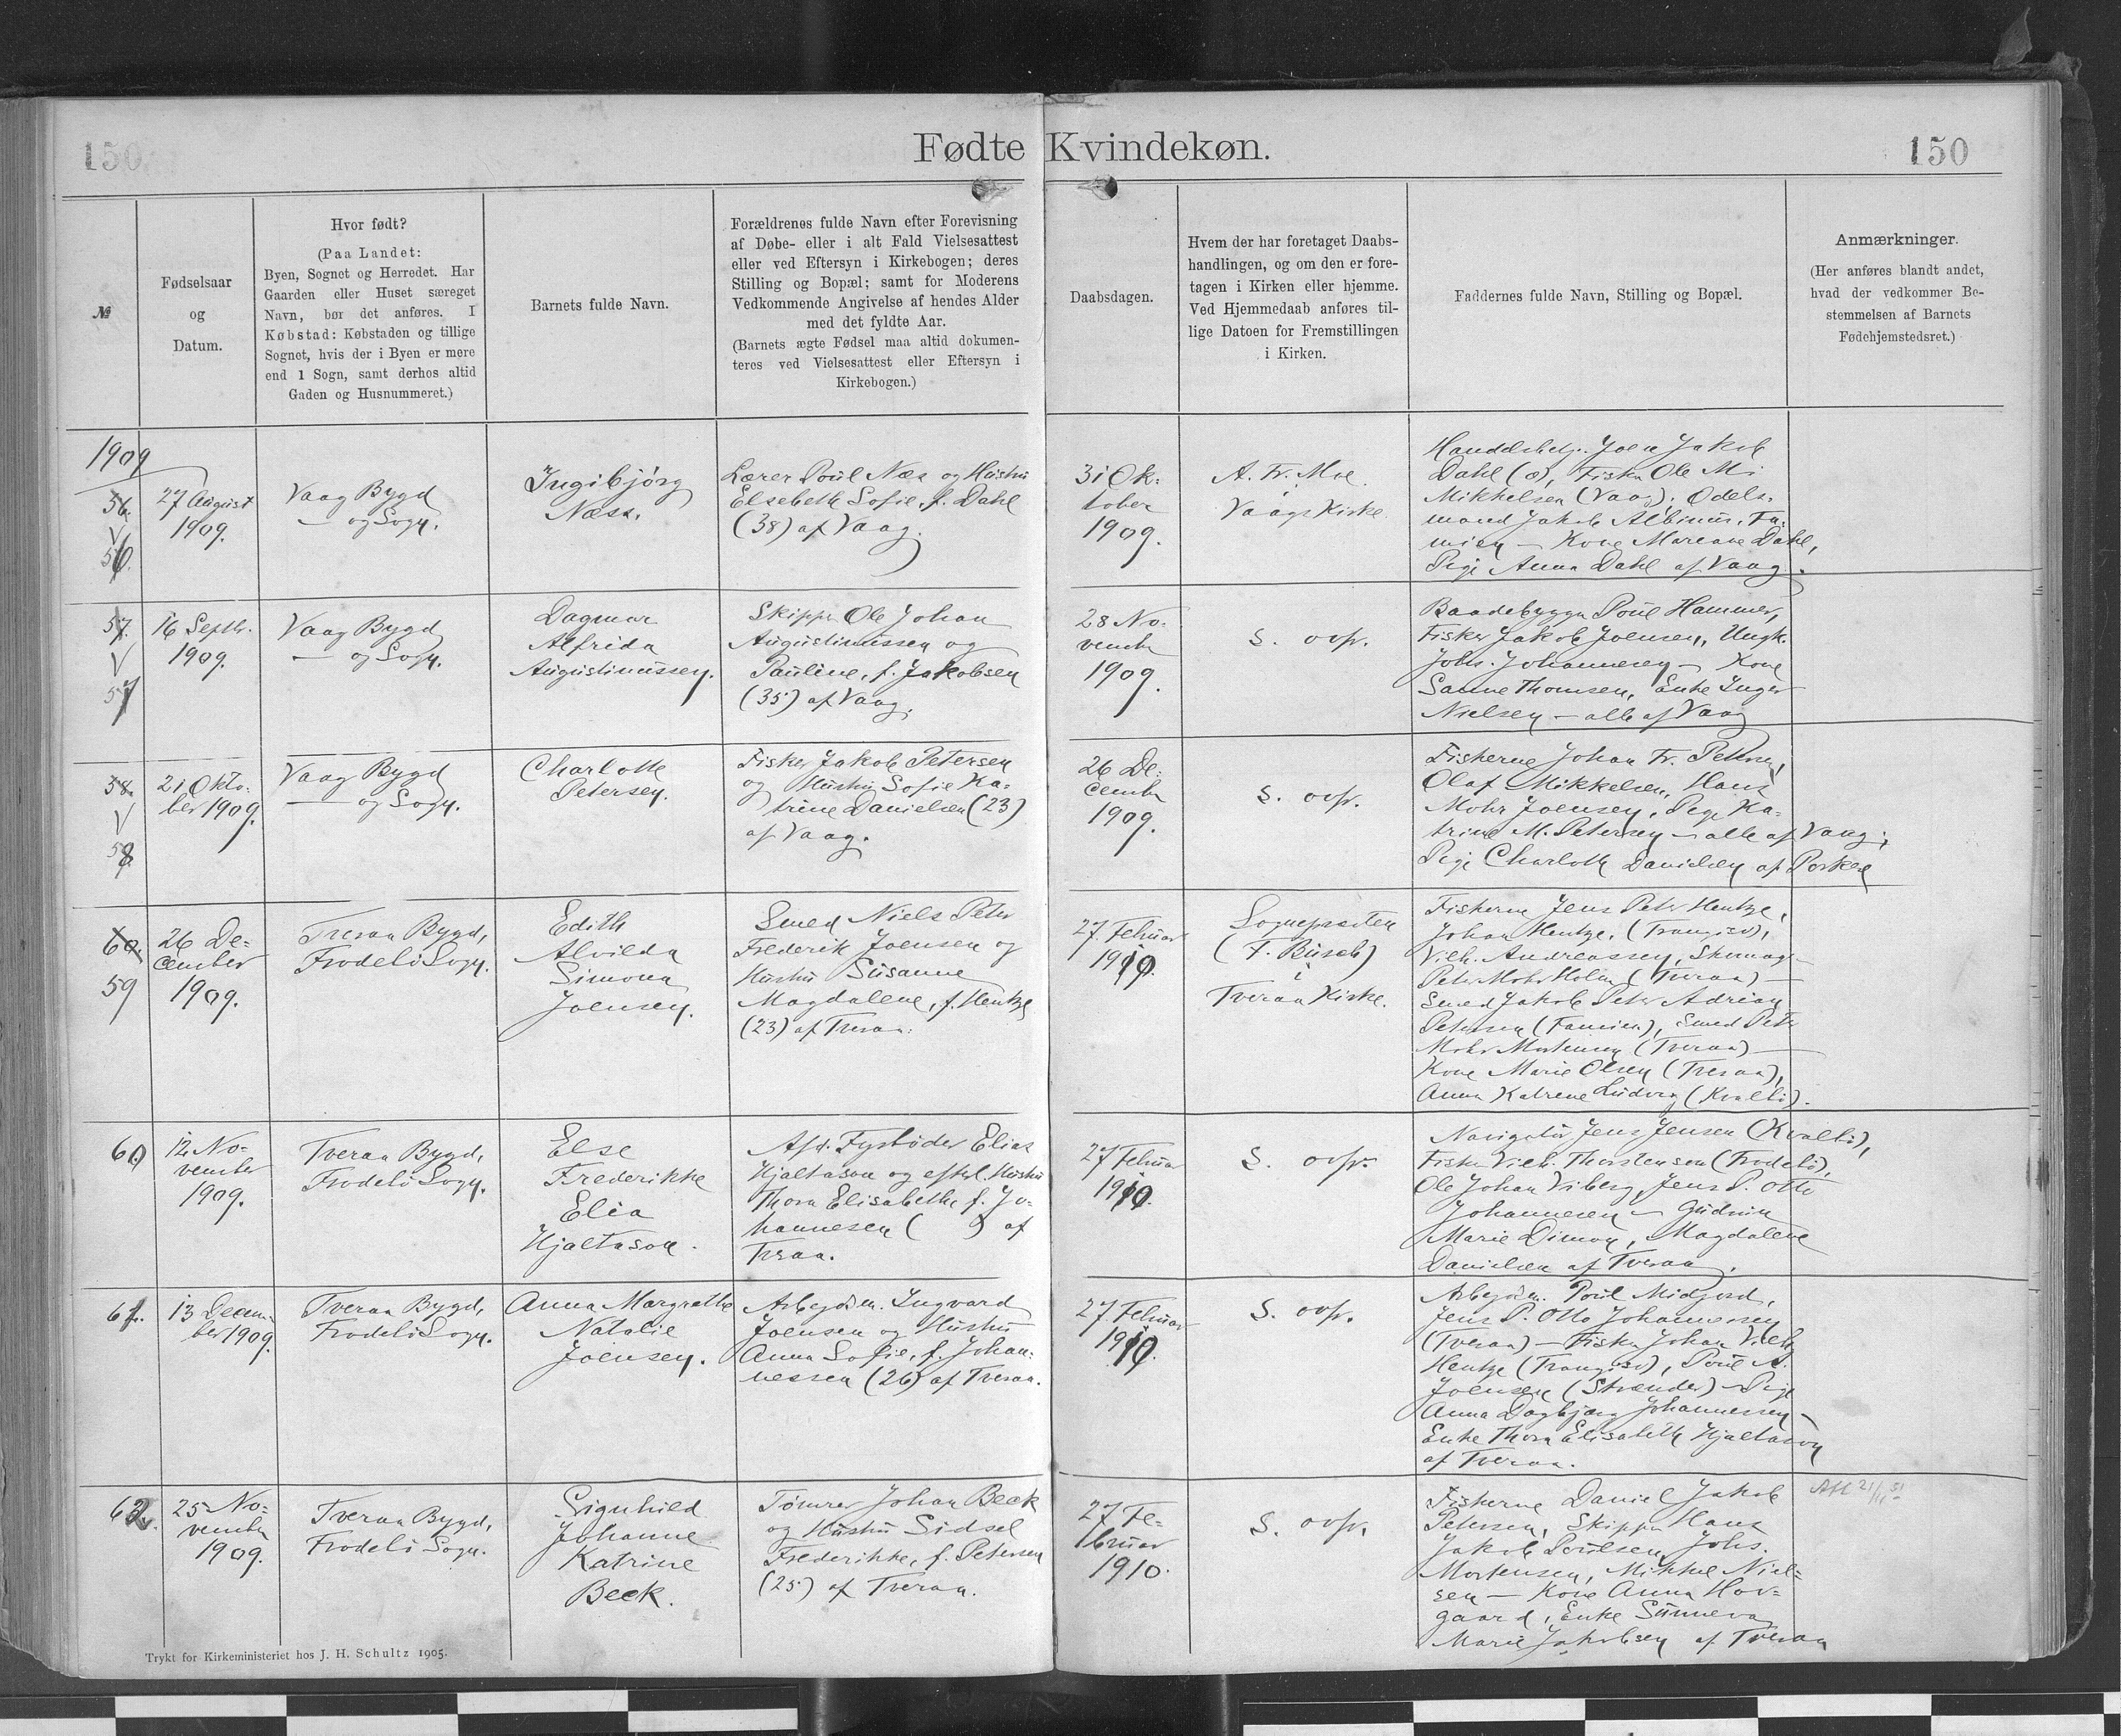 150
Fødte Kvindekøn.
150
№
Fødselsaar
og
Datum.
Hvor født?
(Paa Landet:
Byen, Sognet og Herredet. Har
Gaarden eller Huset særeget
Navn, bør det anføres. I
Købstad: Købstaden og tillige
Sognet, hvis der i Byen er mere
end 1 Sogn, samt derhos altid
Gaden og Husnummeret.)
Barnets fulde Navn.
Forældrenes fulde Navn efter Forevisning
af Døbe- eller i alt Fald Vielsesattest
eller ved Eftersyn i Kirkebogen; deres
Stilling og Bopæl; samt for Moderens
Vedkommende Angivelse af hendes Alder
med det fyldte Aar.
(Barnets ægte Fødsel maa altid dokumen-
teres ved Vielsesattest eller Eftersyn i
Kirkebogen.)
Daabsdagen.
Hvem der har foretaget Daabs-
handlingen, og om den er fore-
tagen i Kirken eller hjemme.
Ved Hjemmedaab anføres til-
lige Datoen for Fremstillingen
i Kirken.
Faddernes fulde Navn, Stilling og Bopæl.
Anmærkninger.
(Her anføres blandt andet,
hvad der vedkommer Be-
stemmelsen af Barnets
Fødehjemstedsret.)
1909
56.
56.
27 August
1909.
Vaag Bygd
— og Sogn.
Ingibjørg
Næss.
Lærer Poul Næs og Hustru
Elsebeth Sofie, f. Dahl
(38) af Vaag.
31 Ok-
tober
1909.
A. Fr. Moe.
i
Vaags Kirke.
Joen Jakob
Dahl (o), Fisker Ole M:
Mikkelsen (Vaag), Odels-
mand Jakob Albinus, Fa-
mien — Kone Mareane Dahl,
Pige Anna Dahl af Vaag.
57.
57
16 Septbr.
1909.
Vaag Bygd
— og Sogn.
Dagmar
Alfrida
Augustinussen.
Skipper Ole Johan
Augustinussen og
Pauline, f. Jakobsen
(35) af Vaag.
28 No-
vember
1909.
S. ovfr.
Baadebygger Poul Hammer,
Fisker Jakob Joensen, Ungk.
Johs. Johannesen — Kone
Sanne Thomsen, Enke Inger
Nielsen — alle af Vaag
58.
58
21 Okto-
ber 1909.
Vaag Bygd
— og Sogn.
Charlotte
Petersen.
Fisker Jakob Petersen
og Hustru Sofie Ka-
trine Danielsen (23)
af Vaag.
26 De-
cember
1909.
S. ovfr.
Fiskerne Johan Fr. Petersen,
Olaf Mikkelsen, Hans
Mohr Joensen, Pige Ka-
trine M. Petersen — alle af Vaag;
Pige Charlotte Danielsen af Porkere
60.
59
26 De-
cember
1909.
Tveraa Bygd,
Frodebö Sogn.
Edith
Alvilda
Simona
Joensen.
Smed Niels Peter
Frederik Joensen og
Hustru Susanne
Magdalene, f. Hentze
(23) af Tveraa.
27. Februar
1910.
Sognepræsten
(F. Busch)
i
Tveraa Kirke.
Fiskerne Jens Peter Hentze,
Johan Hentze, (Trangisv),
Vilh. Andreassen, Skomag.
Peter Mohr Holm (Tveraa) —
Smed Jakob Peter Adrian
Petersen (Famien), Smed Peter
Mohr Mortensen (Tveraa) —
Kone Marie Olsen (Tveraa),
Anna Katrine Ludvig (Kvalbö).
60
12. No-
vember
1909.
Tveraa Bygd,
Frodebö Sogn.
Else
Frederikke
Elia
Hjaltason.
Afd. Fyrbøder Elias
Hjaltason og efterl. Hustru
Thora Elisabeth, f. Jo-
hannesen ( ) af
Tveraa.
27 Februar
1910.
S. ovfr.
Navigatör Jens Jensen (Kvalbö),
Fisker Vilh. Thorstensen (Frodebö),
Ole Johan Viberg, Jens P. Otto
Johannesen — Gudrun
Marie Dimon, Magdalene
Danielsen af Tveraa.
61.
13 Decem-
ber 1909.
Tveraa Bygd,
Frodebö Sogn.
Anna Margrethe
Natalie
Joensen.
Arbejdsm. Ingvard
Joensen og Hustru
Anna Sofie, f. Johan-
nessen (26) af Tveraa.
27 Februar
1910.
S. ovfr.
Arbejdsm. Poul Midjord,
Jens P. Otto Johannesen
(Tveraa) — Fisker Johan Vilh.
Hentze (Trangisv), Poul A.
Joensen (Strænder) — Pige
Anna Dagbjörg Johannesen —
Enke Thora Elisabeth Hjaltason
af Tveraa.
62.
25 No-
vember
1909.
Tveraa Bygd,
Frodebö Sogn.
Signhild
Johanne
Katrine
Beck.
Tömrer Johan Beck
og Hustru Sidsel
Frederikke, f. Petersen
(25) af Tveraa.
27 Fe-
bruar
1910.
S. ovfr.
Fiskerne Daniel Jakob
Petersen, Skipper Hans
Jakob Poulsen, Johs.
Mortensen, Mikkel Niel-
sen — Kone Anna Hov-
gaard, Enke Sunneva
Marie Jakobsen af Tveraa
Trykt for Kirkeministeriet hos J. H. Schultz 1905.